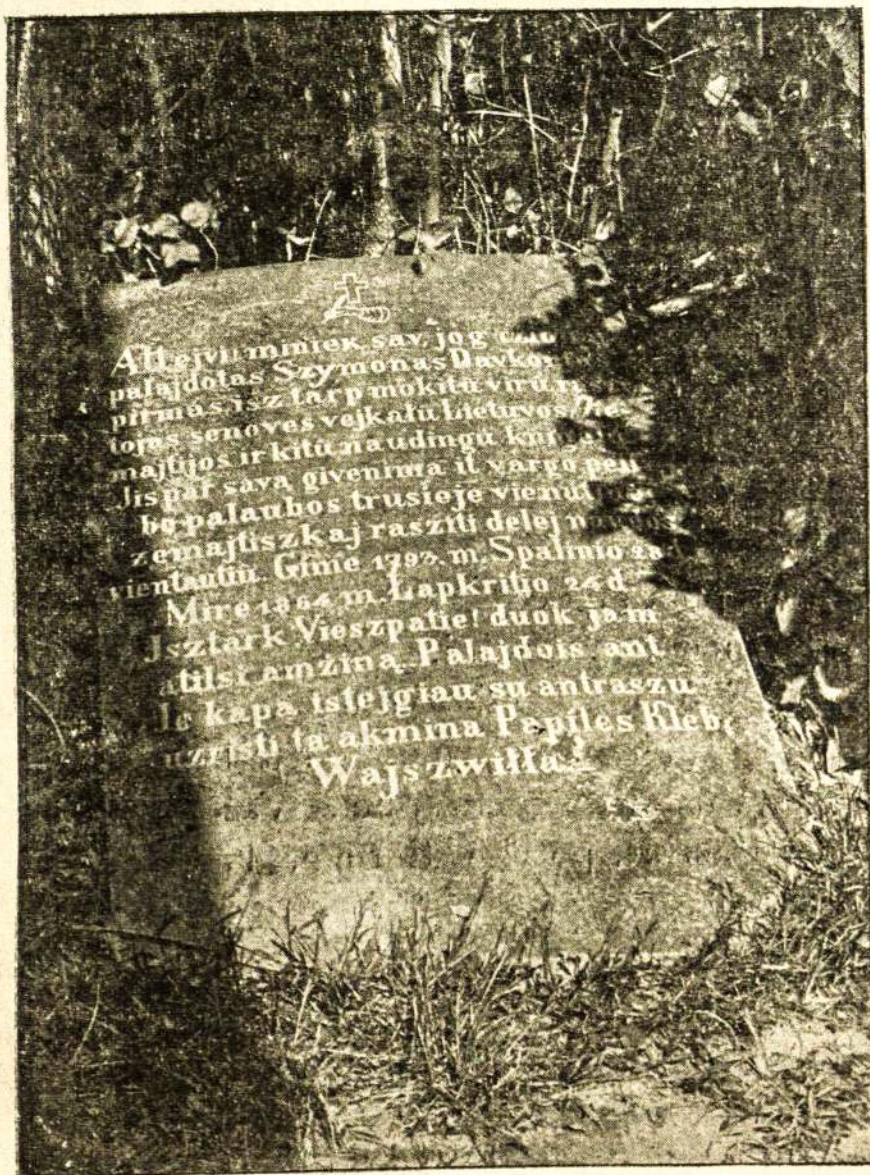 Attejvi miniek sav, jog
palajdotas Szymonas
pirmas isz tarp mokitu viru
tojas senoves vejkału Lietuvos
majtijos ir kitu naudingu
Jis par sava givenima it vargo
bo palaubos trusieje
zemajtiszkaj rasziti delej
vientautiu. Gimie 1793. m. Spalinio
Mire 1864. m. Lapkritio 24 d.
Isztark Vieszpatie! duok jam
atilsi amžiną. Palajdois ant
Jo kapa istejgiau su antraszu
uzristi ta akmina Papiles Kleb.
Wajszwiłła.